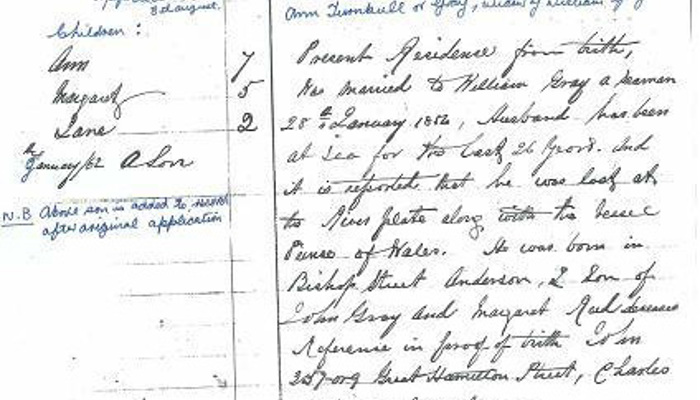 3d august.
Children :
Ann 7
Margaret 5
Jane 2
January/62 A Son
N.B Above son is added to record
after original application
Ann Turnbull or Gray, widow of William
Present Residence from birth,
Was married to William Gray a seaman
28th January 1852, Husband has been
at Sea for the last 26 years. And
it is reported that he was lost at
the River plate along with the vessel
Prince of Wales. He was born in
Bishop Street Anderson, a Son of
John Gray and Margaret Reid deceased
Reference in proof of birth John
Great Hamilton Street, Charles